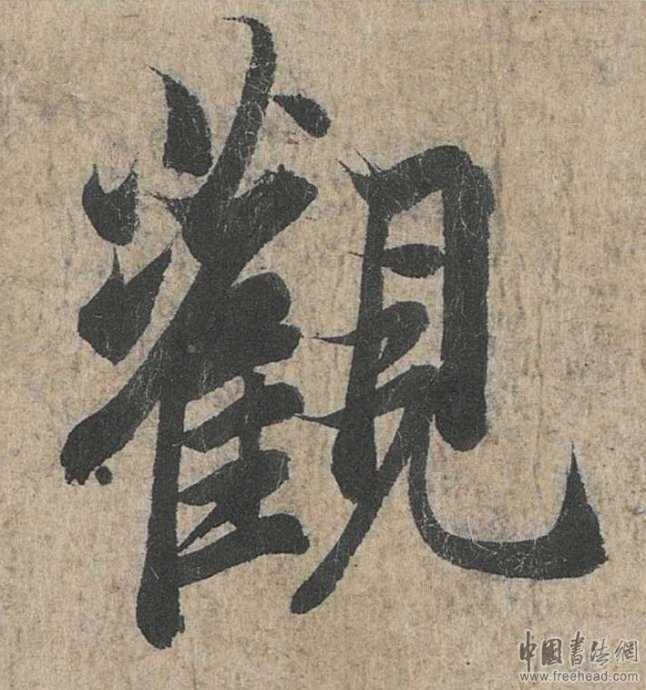 觀
中国书法網
www.freehead.com